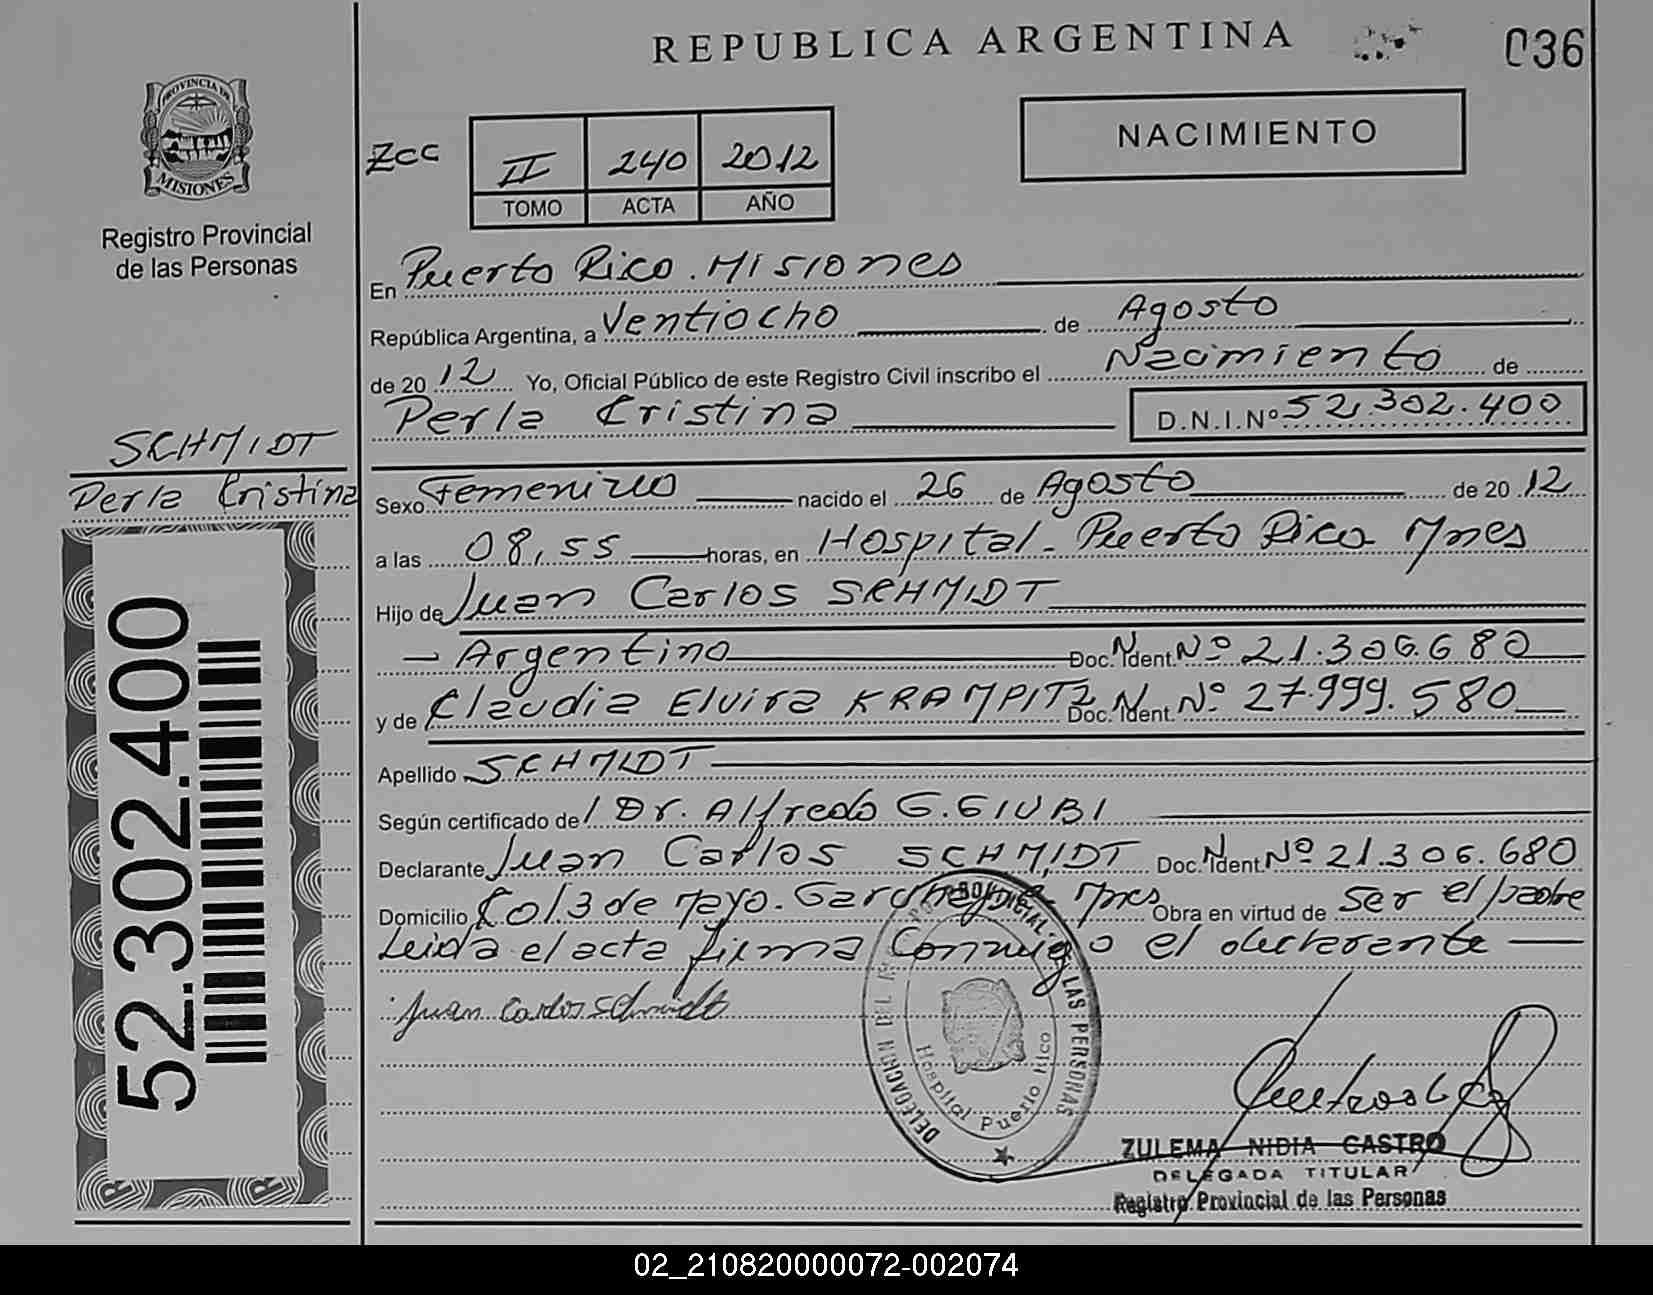 REPUBLICA ARGENTINA
036
PROVINCIA DE
MISIONES
Registro Provincial
de las Personas
zcc
II 240 2012
TOMO ACTA AÑO
NACIMIENTO
En Puerto Rico. Misiones
República Argentina, a Ventiocho de Agosto
de 20 12 Yo, Oficial Público de este Registro Civil inscribo el Nacimiento de
Perla Cristina D.N.I.Nº 52.302.400
SCHMIDT
Perla Cristina
52.302.400
Sexo Femenino nacido el 26 de Agosto de 20 12
a las 08,55 horas, en Hospital - Puerto Rico Mnes
Hijo de Juan Carlos SCHMIDT
- Argentino Doc. Ident. N Nº 21.306.680
y de Claudia Elvira KRAMPITZ Doc. Ident. N Nº 27.999.580
Apellido SCHMIDT
Según certificado de Dr. Alfredo G. GIUBI
Declarante Juan Carlos SCHMIDT Doc. Ident. N Nº 21.306.680
Domicilio Col 3 de Mayo. Mnes Obra en virtud de ser el padre
Leida el acta firma conmigo el declarante
Juan Carlos Schmidt
DELEGACION DEL LAS PERSONAS
Hospital Puerto Rico
ZULEMA NIDIA CASTRO
DELEGADA TITULAR
Registro Provincial de las Personas
02_210820000072-002074